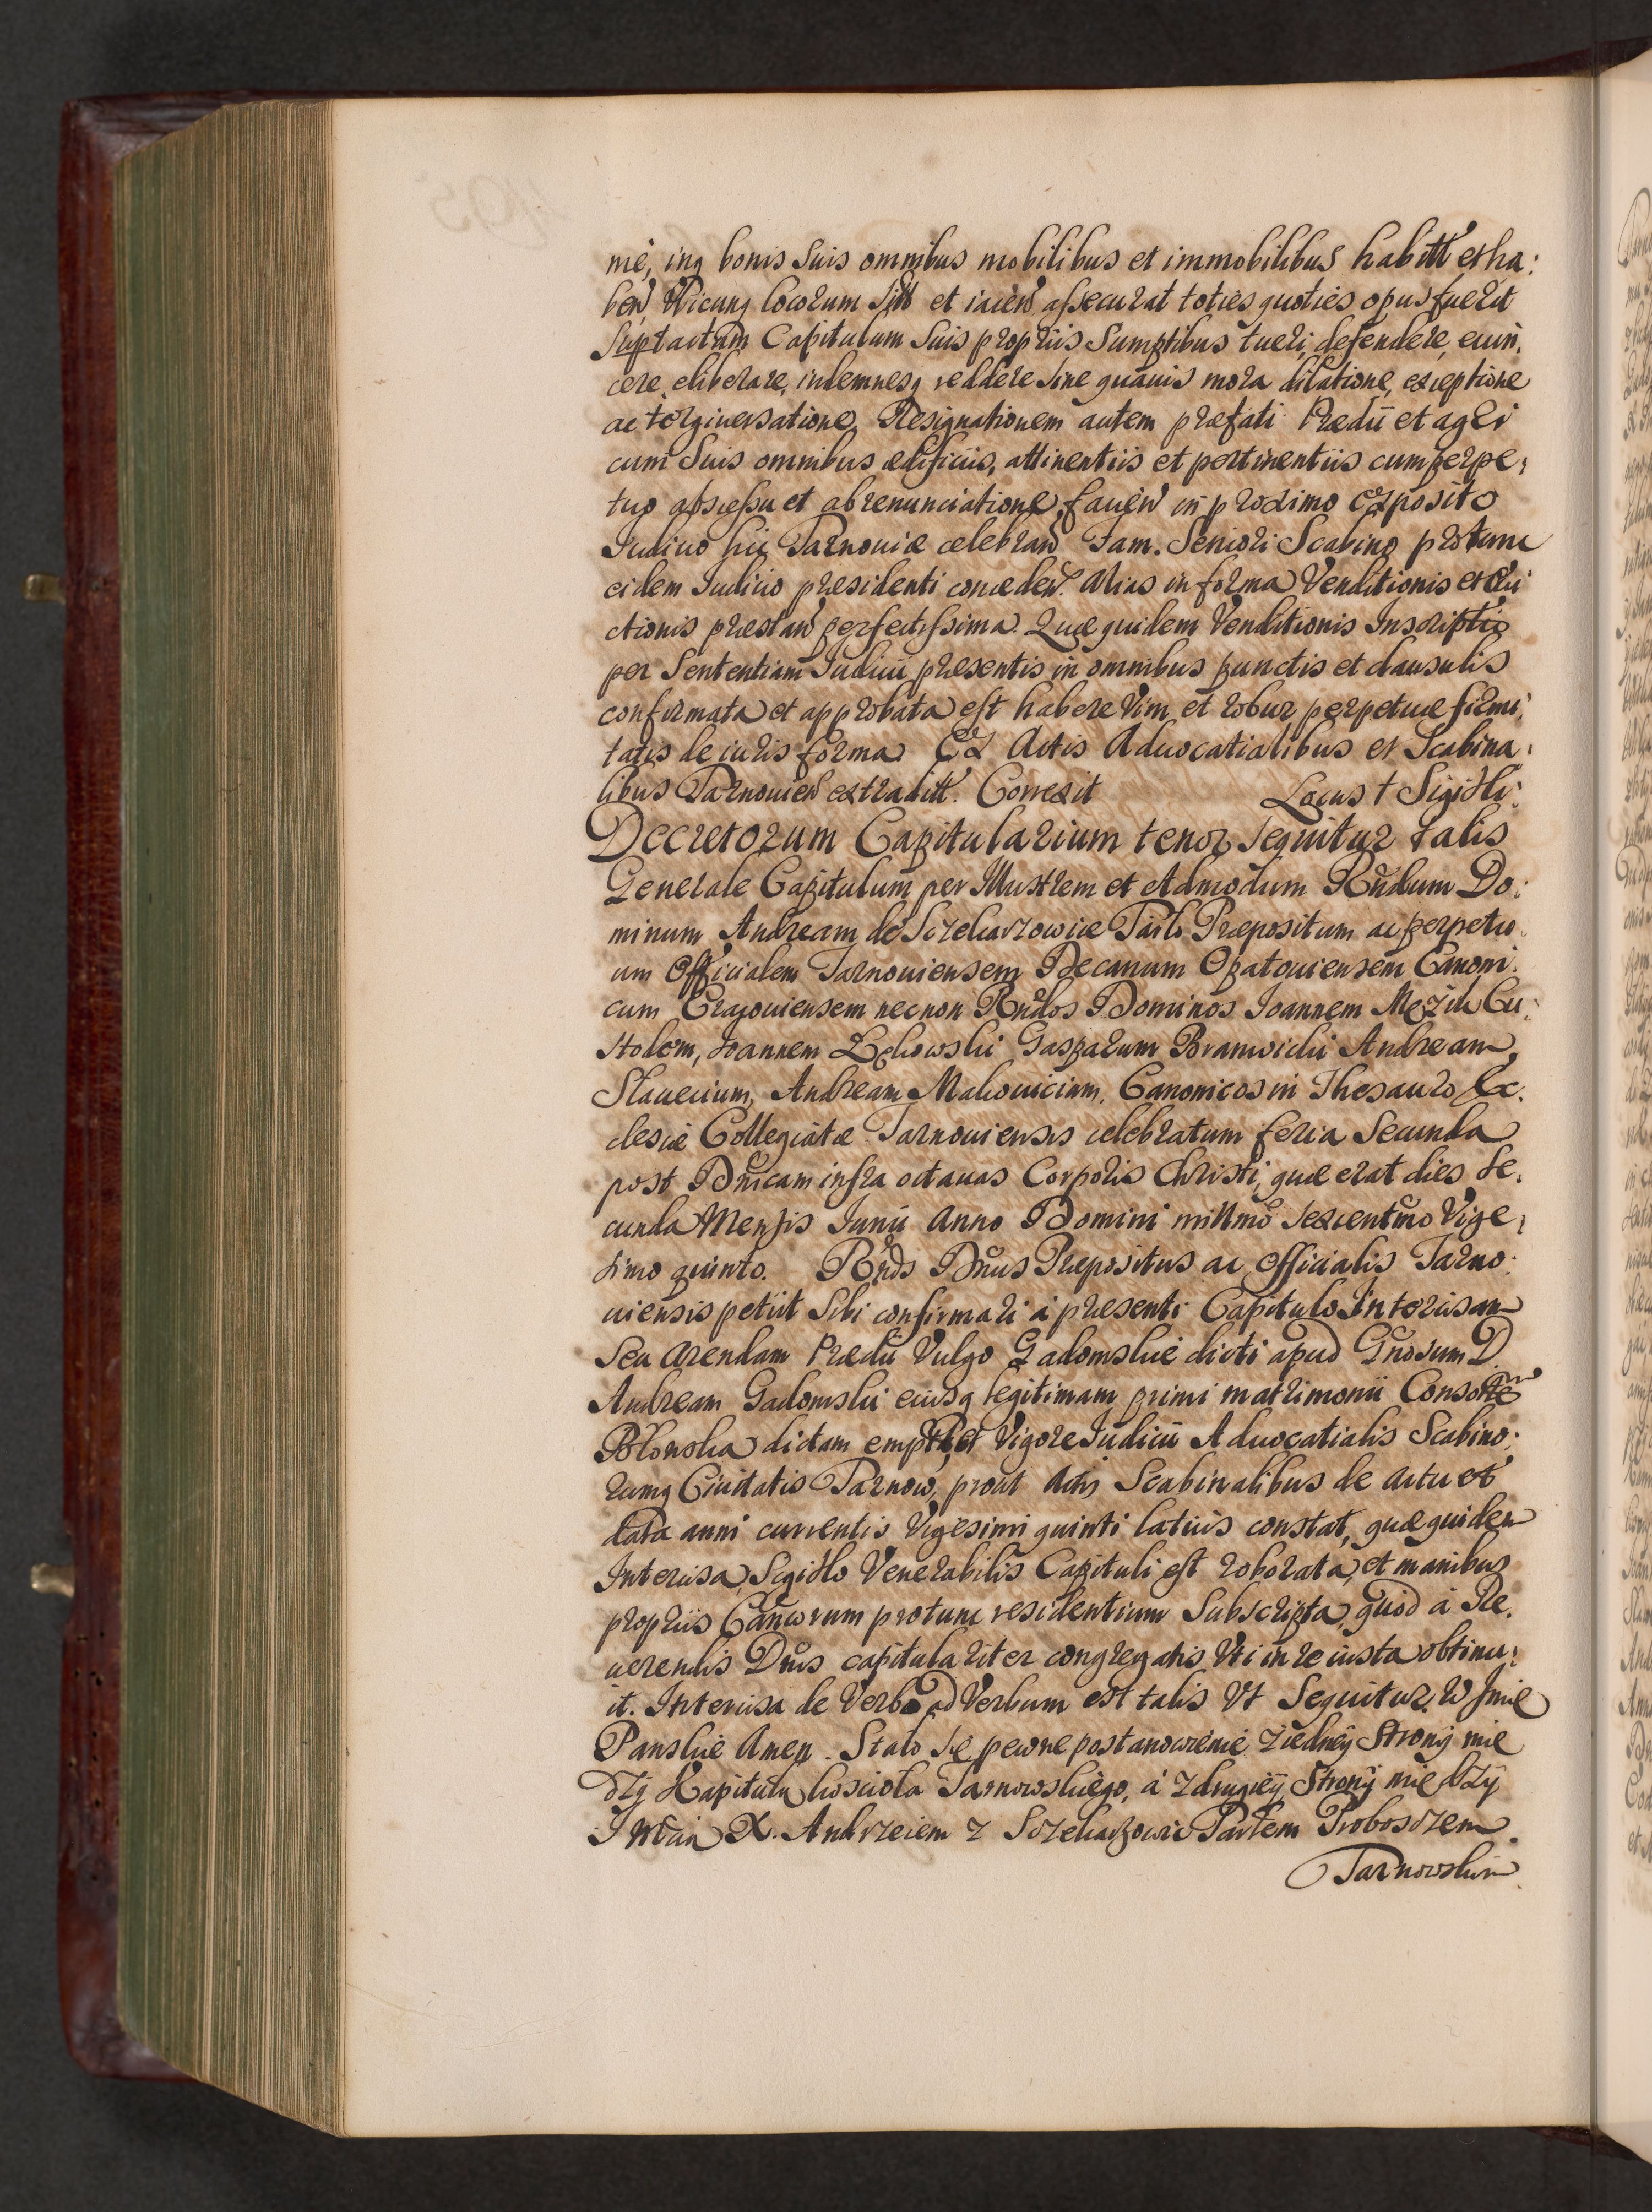 mè, inq bonis Suis omnibus mobilibus et immobilibus habitt et ha:
ben, Vbicunq locorum Sitt et iacen assecurat toties quoties opus fuerit
Suptactum Capitulum Suis proprijs Sumptibus tueri, defendere, euin,
cere, eliberare, indemnesq reddere Sine quauis mora dilatione, exceptione
ac tergiuersatione, Resignationem autem præfati Prædij et agri
cum Suis omnibus ædificiis, attinentiis et pertinentiis cum perpe,
tuo abscessu et abrenunciatione, facien in proximo Exposito
Iudicio hic Tarnouiæ celebran Fam. Seniori Scabino protunc
eidem Iudicio præsidenti conceden. Alias in forma Venditionis et Eui
ctionis præstan perfectissima. Quæ quidem Venditionis Inscriptio
per Sententiam Iudicii præsentis in omnibus punctis et clausulis
confirmata et approbata est habere Vim et robur perpetuæ firmi,
tatis de iuris forma. Ex Actis Aduocatialibus et Scabina,
libus Tarnouien extraditt. Correxit Locus † Sigilli:
Decretorum Capitularium tenor Sequitur talis
Generale Capitulum per Illustrem et Admodum Rndum Do:
minum Andream de Sczekarzowice Tarlo Præpositum ac perpetu
um Officialem Tarnouiensem Decanum Opatouiensem Canoni,
cum Cracouiensem necnon Rndos Dominos Ioannem Mężik Cu,
stodem, Ioannem Lękowski Gasparum Branwicki Andream
Slauecium, Andream Makouicium, Canonicos in Thesauro Ec,
clesiæ Collegiatæ Tarnouiensis celebratum feria Secunda
post Dnicam infra octauas Corporis Christi, quæ erat dies Se,
cunda Mensis Iunii Anno Domini millmo Sexcentmo Vige,
simo quinto. Rnds Dnus Præpositus ac Officialis Tarno,
uiensis petiit Sibi confirmari à præsenti Capitulo Intercisam
Seu Arendam Prædij Vulgo Gadomskie dicti apud Gnosum D.
Andream Gadomski eiusq legitimam primi matrimonii Consortem
Błonska dictam empti, et Vigore Iudicii Aduocatialis Scabino,
rumq Ciuitatis Tarnow, prout Actis Scabinalibus de actu et
data anni currentis Vigesimi quinti latius constat, quæ quidem
Intercisa Sigillo Venerabilis Capituli est roborata, et manibus
propriis Cancorum protunc residentium Subscripta, quod à Re,
uerendis Dnis capitulariter congregatis Vti in re iusta obtinu,
it. Intercisa de Verbo ad Verbum est talis Vt Sequitur. W Imie
Panskie Amen. Stało Się pewne postanowienie ziedney Strony mie
dzy Kapitułą kosciola Tarnowskiego, á zdrugiey Strony miedzy
Imcią X. Andrzeiem z Sczekarzowic Tarłem Proboszczem
Tarnowskim